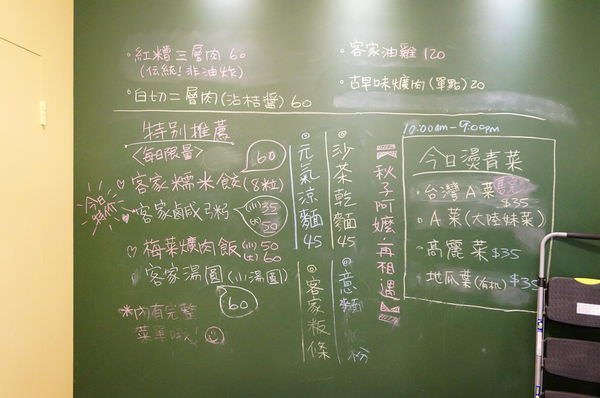 ·紅糟三層肉 60
(伝統!非油炸)
·白切二層肉(沾桔醬) 60
·客家油雞 120
·古早味爌肉(單點) 20
特別推薦
<每日限量>
60
客家糯米餃(8粒)
今日特z
客家鹹粥
(小) 35
(大) 50
梅菜爌肉飯 (小) 50
(大) 60
客家湯圓(小湯圓)
60
*內有完整
菜單哦!
元氣涼麵 45
客家粄條
沙茶乾麵 45
意麵
粉
秋子阿嬤·再相遇
10:00am-9:00pm
今日燙青菜
·台灣A菜
·A菜(大陸妹菜)
·高麗菜 $35
·地瓜葉(有机) $35